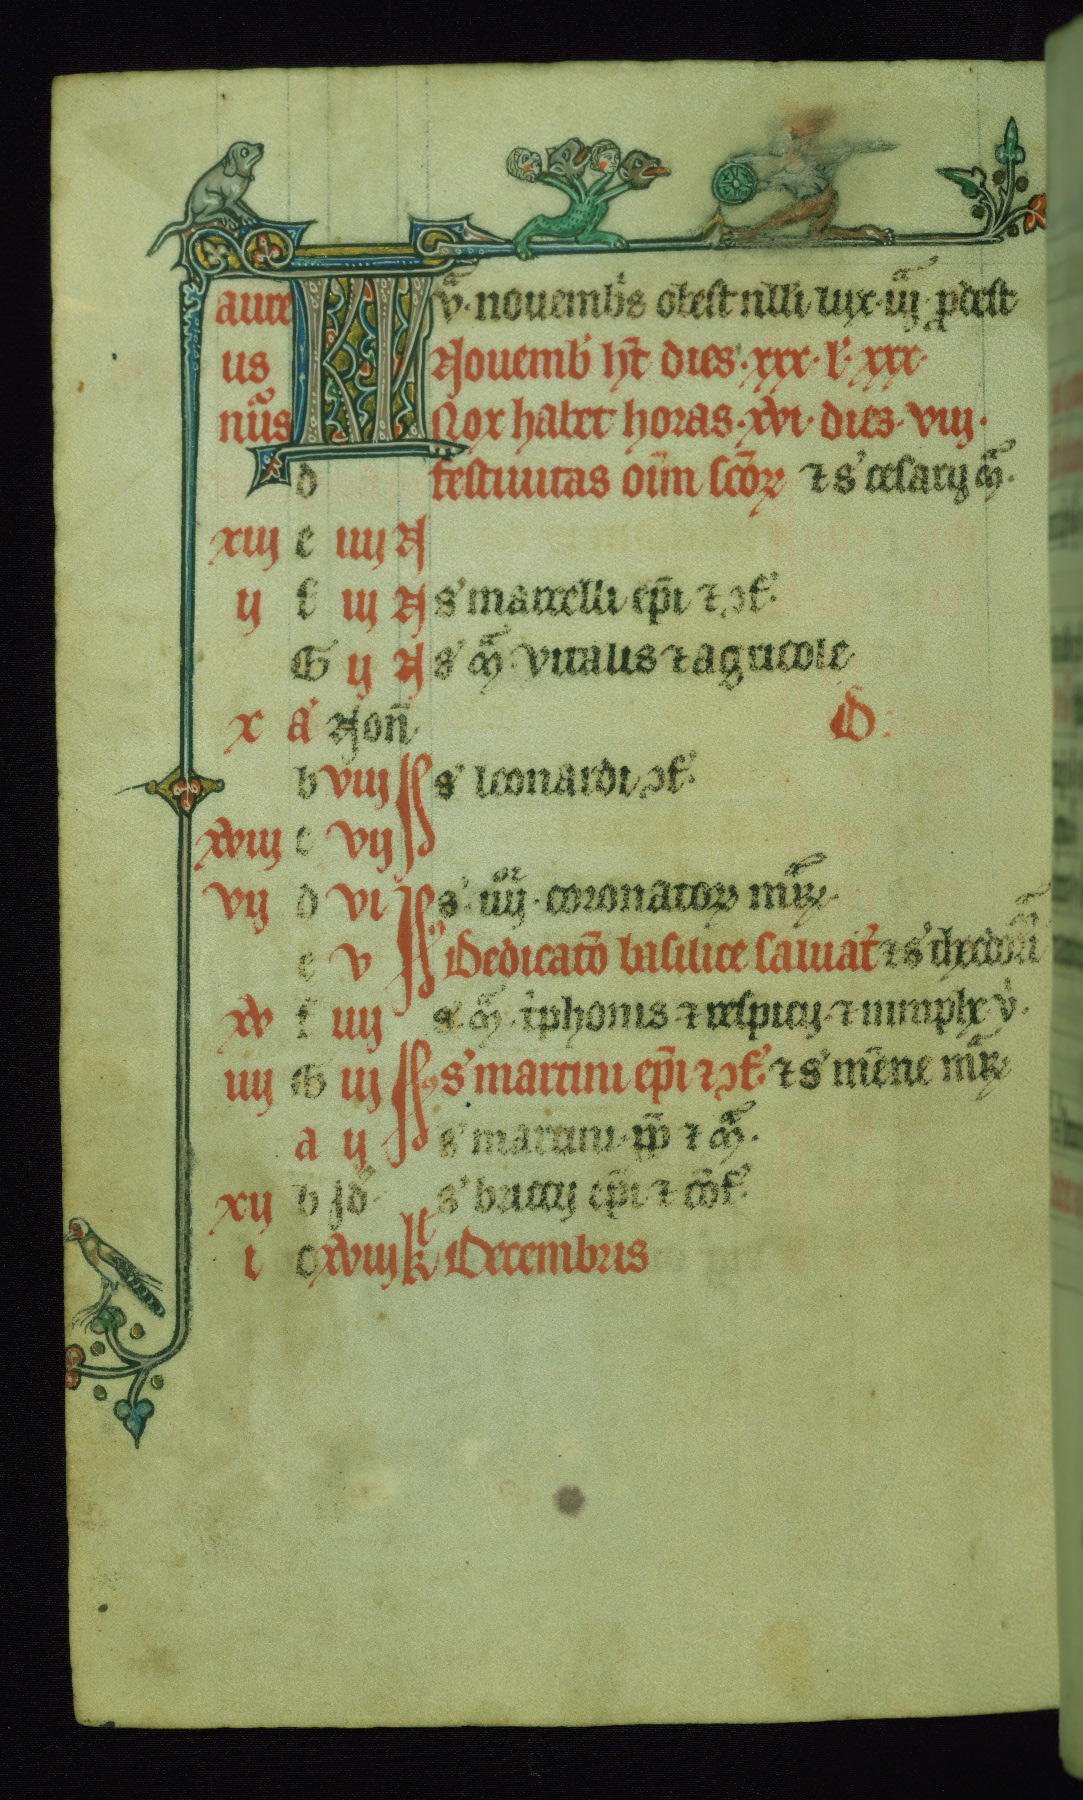 aure KL v̄ · nouembis obest nilli lux · iiij · ꝓdest
us Nouemb' ht dies · xxx · l' · xxx ·
nūs Nox habet horas · xvi · dies · viij ·
d festiuitas oīm scōꝝ ⁊ s' cesarij m̄ ·
xiij e iiij N
ij f iij N s' marcelli ep̄i ⁊ ɔf'.
G ij N s' m̄ vitalis ⁊ agricole
x a Non̄ D
b viij Id s' leonardi ɔf'.
xviij c vij
vij d vi Id s' iiij · coronatoꝝ mr̄ꝝ ·
e v Dedicatō basilice saluat' ⁊ s'
xv f iiij s' m̄ · t'phonis ⁊ respicij · ⁊ nimphe v' ·
iiij G iij Id s' martini ep̄i ⁊ ɔf' · ⁊ s' mēne mr̄
a ij s' martini · pp̄ ⁊ m̄ ·
xij b jd' s' briccij ep̄i ⁊ cōf' ·
i c xviij kl Decembris